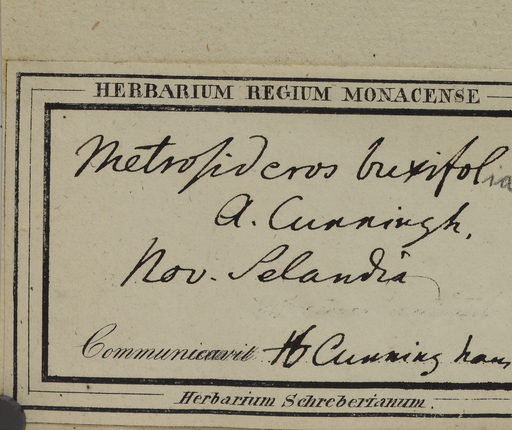 HERBARIUM REGIUM MONACENSE
Metrosideros buxifolia
A. Cunningh.
Nov. Selandia
Communicavit Cunningham
Herbarium Schreberianum.